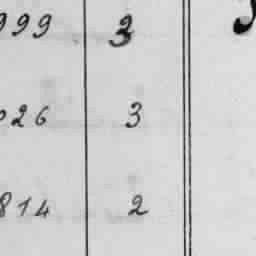 999 3
026 3
814 2